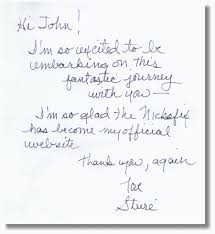 Hi John!
I'm so excited to be
embarking on this
fantastic journey
with you—
I'm so glad the Nicksfix
has become my official
website
thank you, again